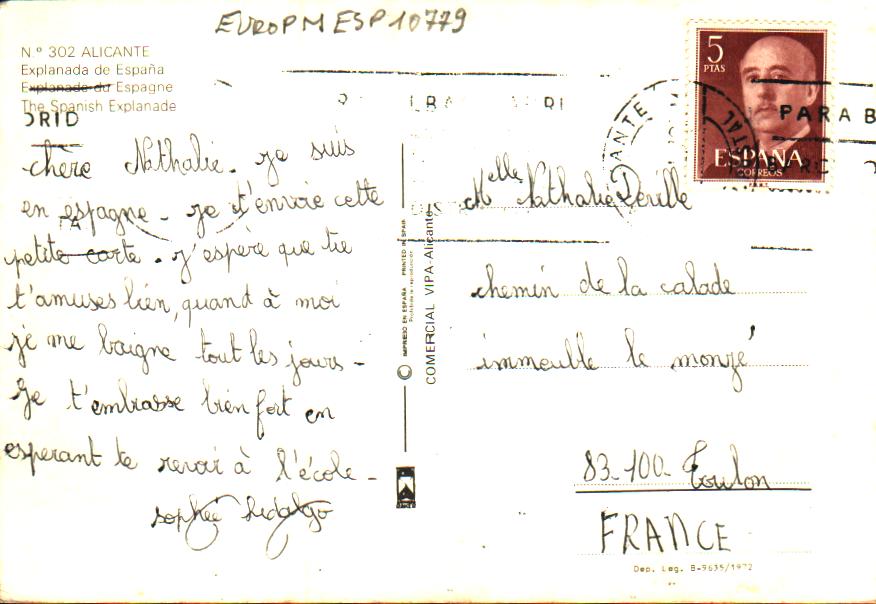 EUROPM ESP10779
N.º 302 ALICANTE
Explanada de España
Explanade du Espagne
The Spanish Explanade
DRID
chère Nathalie. je suis
en espagne - je t'envoie cette
petite carte. j'espère que tu
t'amuses bien, quand à moi
je me baigne tout les jours -
Je t'embrasse bien fort en
esperant te revoir à l'école -
sophie hidalgo
IMPRESO EN ESPAÑA PRINTED IN SPAIN
Prohibida la reproducción
COMERCIAL VIPA-Alicante
5
PTAS
ESPAÑA
CORREOS
PARA B
ANTE
Melle Nathalie Derille
chemin de la calade
immeuble le monzé
83-100- Toulon
FRANCE
Dep. Leg. B-9635/1972